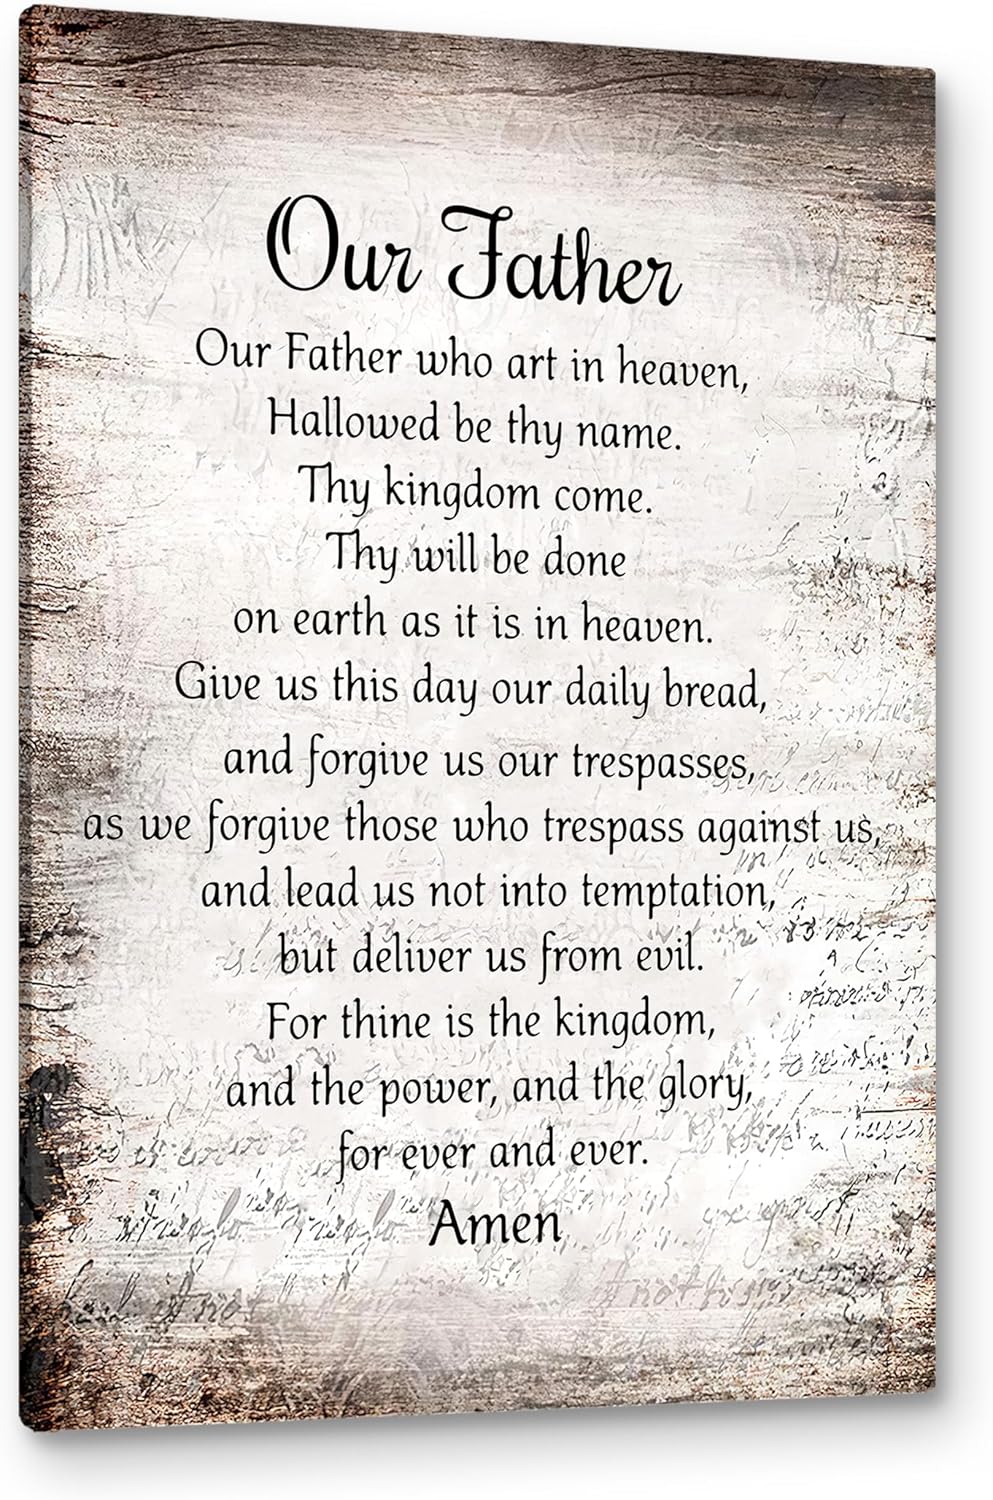 Our Father
Our Father who art in heaven,
Hallowed be thy name.
Thy kingdom come.
Thy will be done
on earth as it is in heaven.
Give us this day our daily bread,
and forgive us our trespasses,
as we forgive those who trespass against us,
and lead us not into temptation,
but deliver us from evil.
For thine is the kingdom,
and the power, and the glory,
for ever and ever.
Amen